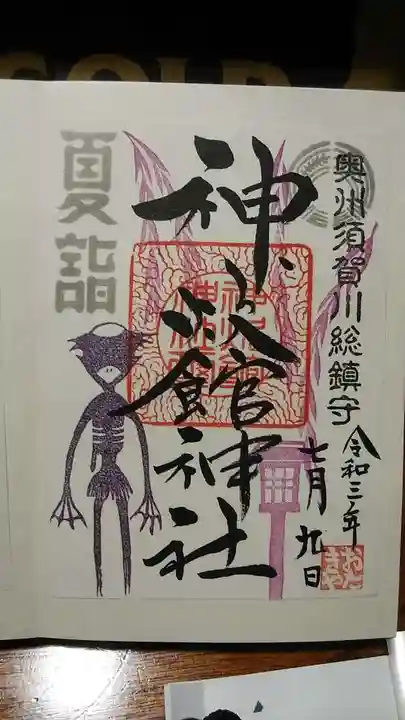 奥州須賀川総鎮守
令和三年
七月九日
神炊館神社
夏詣